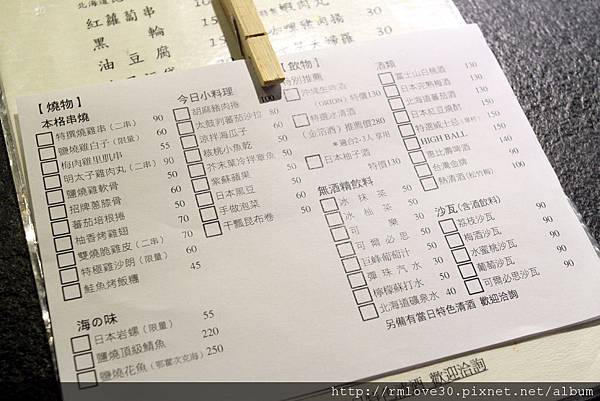 紅蘿蔔串
黑輪
油豆腐
【燒物】
本格串燒
特撰燒雞串(二串) 90
鹽燒雞白子(限量) 60
梅肉雞里肌串 55
明太子雞肉丸(二串) 90
鹽燒雞軟骨 60
招牌蔥膝骨 50
蕃茄培根捲 70
柚香烤雞翅 70
雙燒脆雞皮(二串) 70
特極雞沙朗(限量) 60
鮭魚烤飯糰 45
海の味
日本岩螺(限量) 55
鹽燒頂級鯖魚 220
鹽燒花魚(鄂霍次克海) 250
今日小料理
胡麻豬肉捲 100
太鼓烈蕃茄沙拉 80
涼拌海瓜子 60
核桃小魚乾 50
芥末葉冷拌章魚 50
紫蘇蘋果 50
日本黑豆 60
手做泡菜 50
干瓢昆布卷 50
【飲物】
特別推薦
沖繩生啤酒
(ORION) 特價130
特選冰清酒
(金箔酒) 推薦價280
*適合2-3人享用
日本柚子酒
特價130
無酒精飲料
冰抹茶 50
冰柚茶 50
可樂 30
可爾必思 50
巨蜂葡萄汁 50
彈珠汽水 30
檸檬蘇打水 50
北海道礦泉水 40
酒類
富士山白桃酒 130
日本完熟梅酒 130
北海道蕃茄酒 130
日本紅豆燒酎 150
HIGH BALL 130
惠比壽啤酒 130
台灣金牌 100
熱清酒(松竹梅) 100
沙瓦(含酒飲料)
荔枝沙瓦 90
梅酒沙瓦 90
水蜜桃沙瓦 90
葡萄沙瓦 90
可爾必思沙瓦 90
另備有當日特色清酒 歡迎洽詢
歡迎洽詢
http://rmlove30.pixnet.net/album